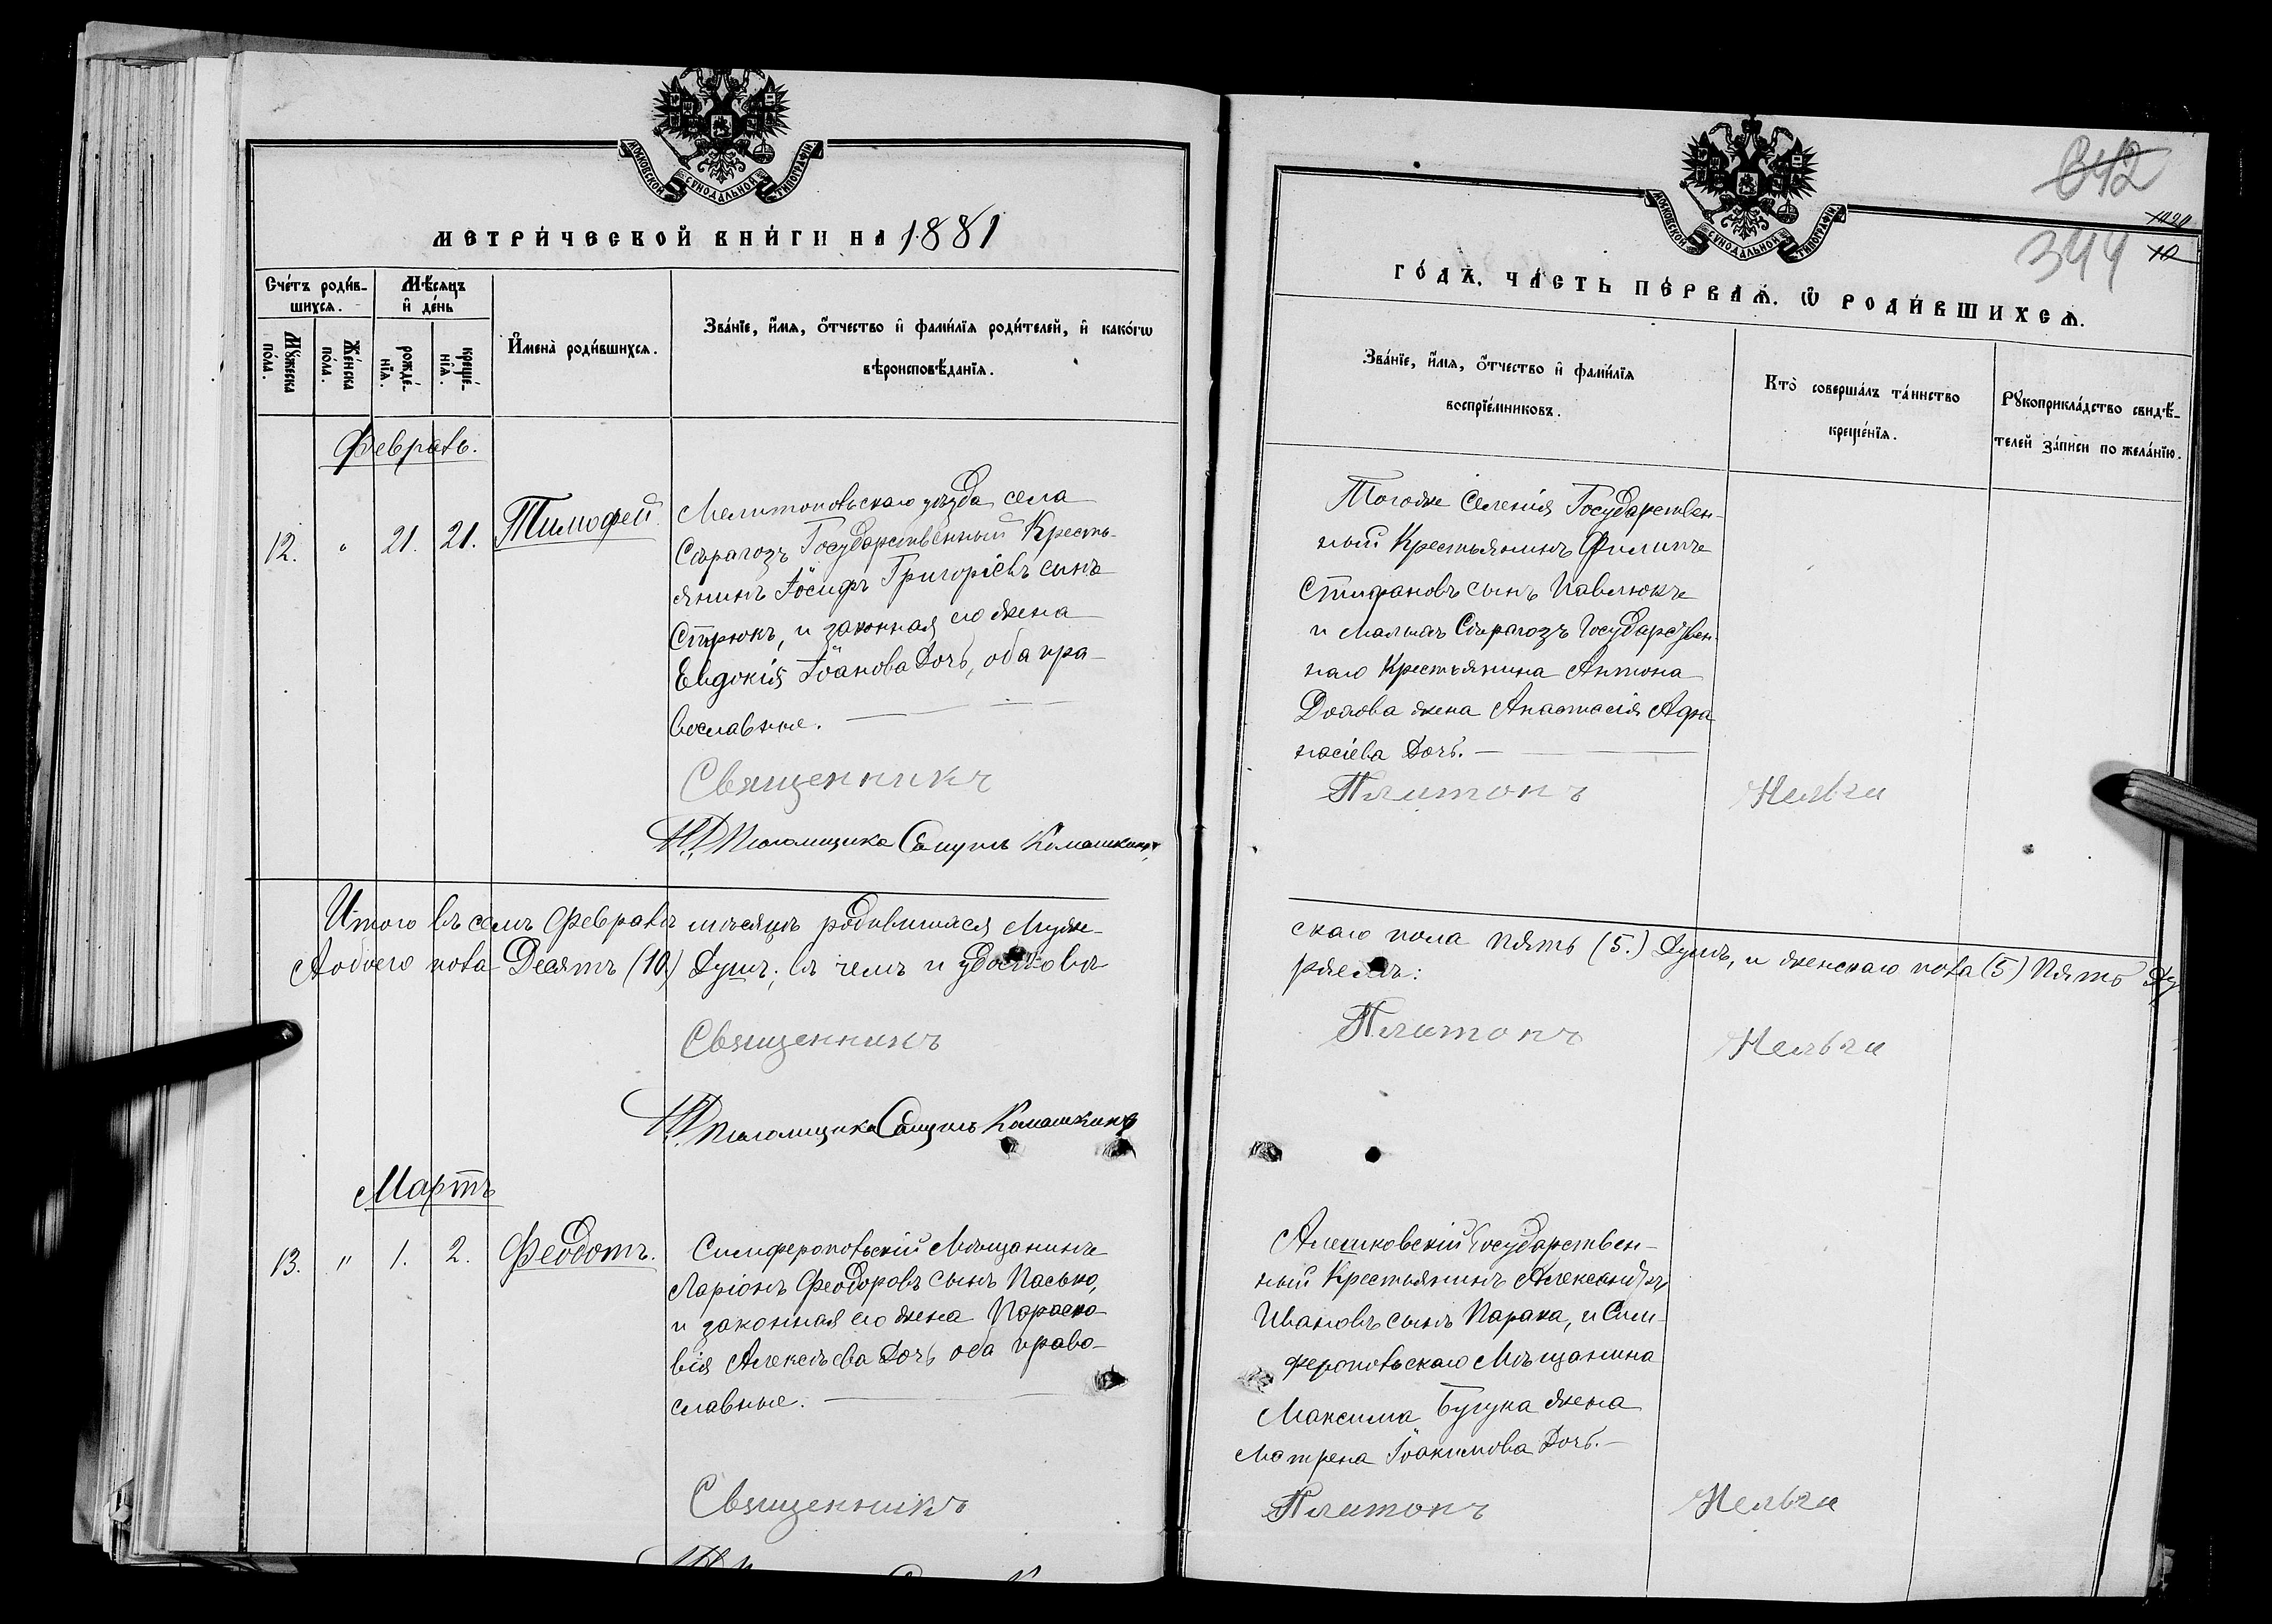 МОСКОВСКОЙ СУНОДАЛЬНОЙ ТИПОГРАФІИ
МЕТРИ́ЧЕСКОЙ КНИ́ГИ НА 1881
Сче́тъ роди́в-
шихсѧ.
Мѣ́сѧцъ
и҆ де́нь
И҆мена̀ роди́вшихсѧ.
Зва́нїе, и҆́мѧ, ѻ҆́тчество и҆ фами́лїѧ роди́телей, и҆ како́гѡ
вѣроисповѣ́данїѧ.
Мꙋ́жеска
по́ла.
Же́нска
по́ла.
рожде́-
нїѧ.
креще́-
нїѧ.
Февраль.
12. " 21. 21. Тимофей.
Мелитопольскаго уѣзда села
Сѣрагозъ Государственный Кресть-
янинъ Іосифъ Григоріевъ сынъ
Стрюкъ, и законная его жена
Евдокія Іоанова дочь, оба пра-
вославные.
Священникъ
И.Д. Псаломщика Самуилъ
Итого въ семъ Февралѣ мѣсяцѣ родившихся Муже-
А обоего пола Десять (10) Душъ; въ чемъ и удостовѣ
Священникъ
И.Д. Псаломщика Самуилъ
Мартъ
13. " 1. 2. Феодотъ.
Симферопольскій Мѣщанинъ
Ларіонъ Феодоровъ сынъ Пасько,
и законная его жена Параско-
вія Алексѣева дочь, оба право-
славные.
Священникъ
642
344
МОСКОВСКОЙ СУНОДАЛЬНОЙ ТИПОГРАФІИ
ГО́ДЪ. ЧА́СТЬ ПЕ́РВАѦ. Ѡ҆ РОДИ́ВШИХСѦ.
Зва́нїе, и҆́мѧ, ѻ҆́тчество и҆ фами́лїѧ
воспрїе́мниковъ.
Кто̀ соверша́лъ та́инство
креще́нїѧ.
Рꙋкоприкла́дство свидѣ́-
телей за́писи по жела́нїю.
Тогоже Селенія Государствен-
ный Крестьянинъ Филипъ
Стифановъ сынъ Павлюкъ
и Малыхъ Сѣрагозъ Государствен-
наго Крестьянина Антона
жена Анастасія Афа
насіева дочь.
Платонъ
скаго пола пять (5.) Душъ, и женскаго пола (5) Пять Ду
ряемъ:
Платонъ
Алешковскій Государствен-
ный Крестьянинъ Александръ
Ивановъ сынъ Парака, и Сим-
феропольскаго Мѣщанина
Максима Бугука жена
Матрена Іоакимова дочь.
Платонъ